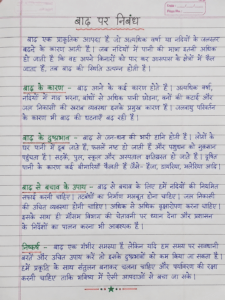 बाढ़ पर निबंध
बाढ़ एक प्राकृतिक आपदा है, जो अत्यधिक वर्षा या नदियों के जलस्तर
बढ़ने के कारण आती है। जब नदियों में पानी की मात्रा इतनी अधिक
हो जाती है कि वह अपने किनारों को पार कर आसपास के क्षेत्रों में फैल
जाता है, तब बाढ़ की स्थिति उत्पन्न होती है।
बाढ़ के कारण - बाढ़ के कई कारण होते हैं। अत्यधिक वर्षा,
नदियों में गाद भरना, बांधों से अधिक पानी छोड़ना, वनों की कटाई और
जल निकासी की खराब व्यवस्था इसके प्रमुख कारण हैं। जलवायु परिवर्तन
के कारण भी बाढ़ की घटनाएँ बढ़ रही हैं।
बाढ़ के दुष्प्रभाव - बाढ़ से जन-धन की भारी हानि होती है। लोगों के
घर पानी में डूब जाते हैं, फसलें नष्ट हो जाती हैं और पशुधन को नुकसान
पहुंचता है। सड़कें, पुल, स्कूल और अस्पताल क्षतिग्रस्त हो जाते हैं। दूषित
पानी के कारण कई बीमारियाँ फैलती हैं जैसे- हैजा, डायरिया, मलेरिया आदि।
बाढ़ से बचाव के उपाय - बाढ़ से बचाव के लिए हमें नदियों की नियमित
सफाई करनी चाहिए। तटबंधों का निर्माण मजबूत होना चाहिए। जल निकासी
की उचित व्यवस्था होनी चाहिए। अधिक से अधिक वृक्षारोपण करना चाहिए।
इसके साथ ही मौसम विभाग की चेतावनी पर ध्यान देना और प्रशासन
के निर्देशों का पालन करना भी आवश्यक है।
निष्कर्ष - बाढ़ एक गंभीर समस्या है लेकिन यदि हम समय पर सावधानी
बरतें और उचित उपाय करें तो इसके दुष्प्रभावों को कम किया जा सकता है।
हमें प्रकृति के साथ संतुलन बनाकर चलना चाहिए और पर्यावरण की रक्षा
करनी चाहिए ताकि भविष्य में ऐसी आपदाओं से बचा जा सके।